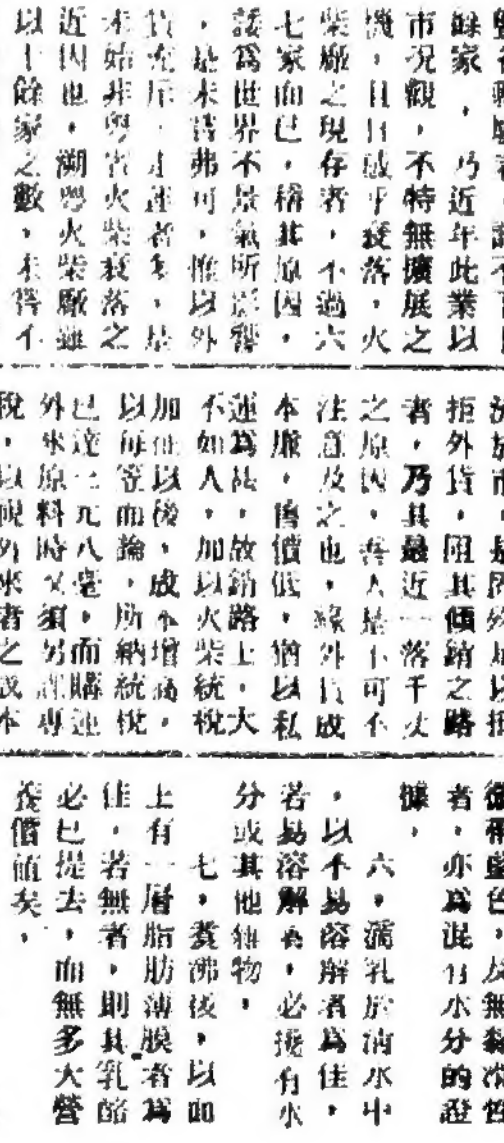 餘家,乃近年此業以
市况觀,不特無擴展之
機,且日感乎衰落,火
柴廠之現存者,不過六
七家而已,稱其原因,
諉爲世界不景氣所影響
,是未嘗弗可,惟以外
貨充斥,走運者多,是
未始非粤省火柴衰落之
近因也,溯粤火柴廠雖
以十餘家之數,未得不
拒外貨,阻其傾銷之路
者,乃其最近一落千丈
之原因,吾人是不可不
注意及之也,緣外貨成
本廉,售價低,猶以私
運爲法,故銷路上,大
不如人,加以火柴統稅
加征以後,成本增高,
以每而論,所納統稅,
已達二元八毫,而購運
外來原料時又須另課專
稅,以視外來者之成本
微帶藍色,及無黏滯性
者,亦爲混有水分的證
據,
六,滴乳於清水中
,以不易溶解者爲佳,
若易溶解者,必攙有水
分或其他雜物,
七,煮沸後,以面
上有一層脂肪薄膜者爲
佳,若無者,則其乳酪
必已提去,而無多大營
養價值矣,